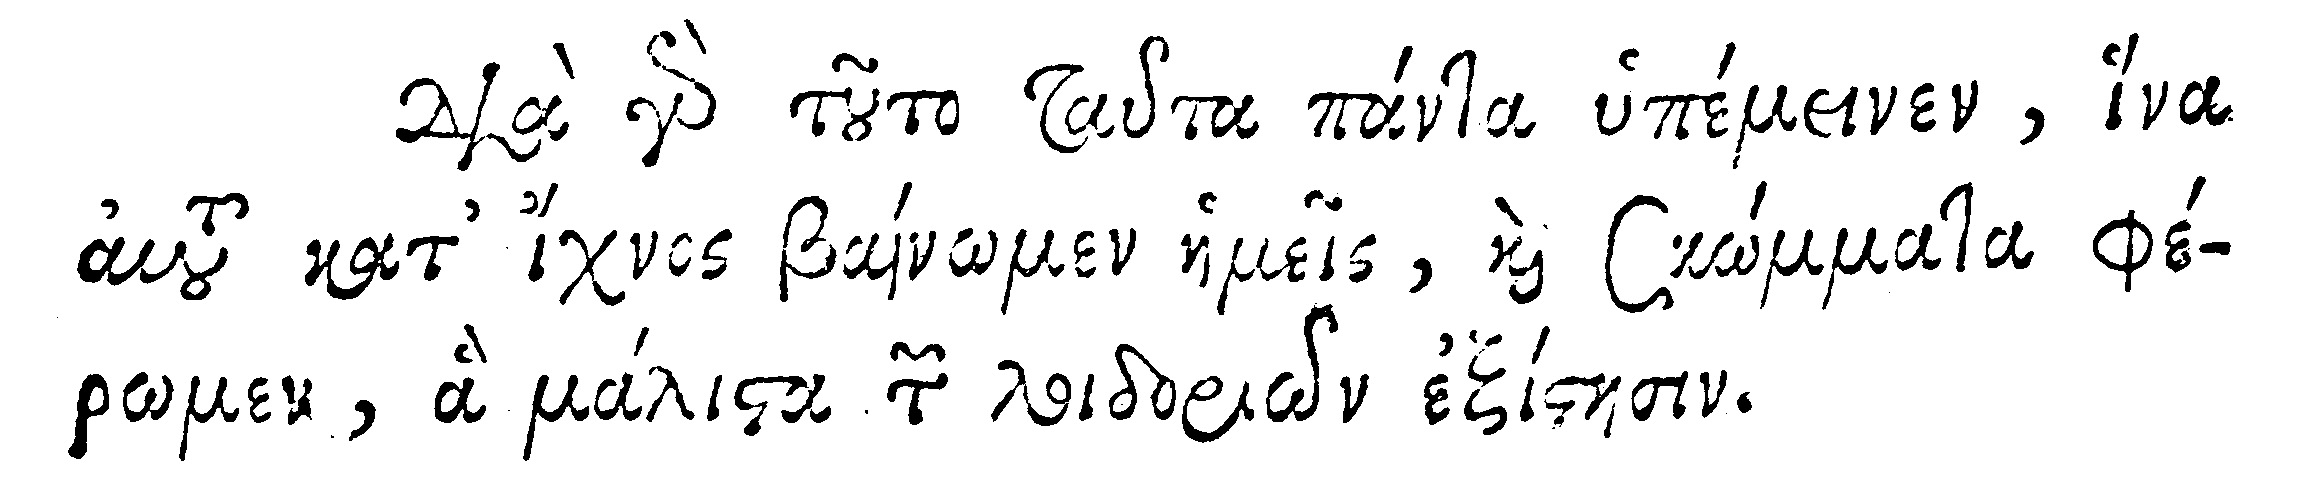 Διὰ γὰρ τοῦτο ταῦτα πάντα ὑπέμεινεν, ἵνα
αὐτοῦ κατ' ἴχνος βαίνωμεν ἡμεῖς, καὶ σκώμματα φέ-
ρωμεν, ἃ μάλιστα τῶν λοιδοριῶν ἐξίστησιν.